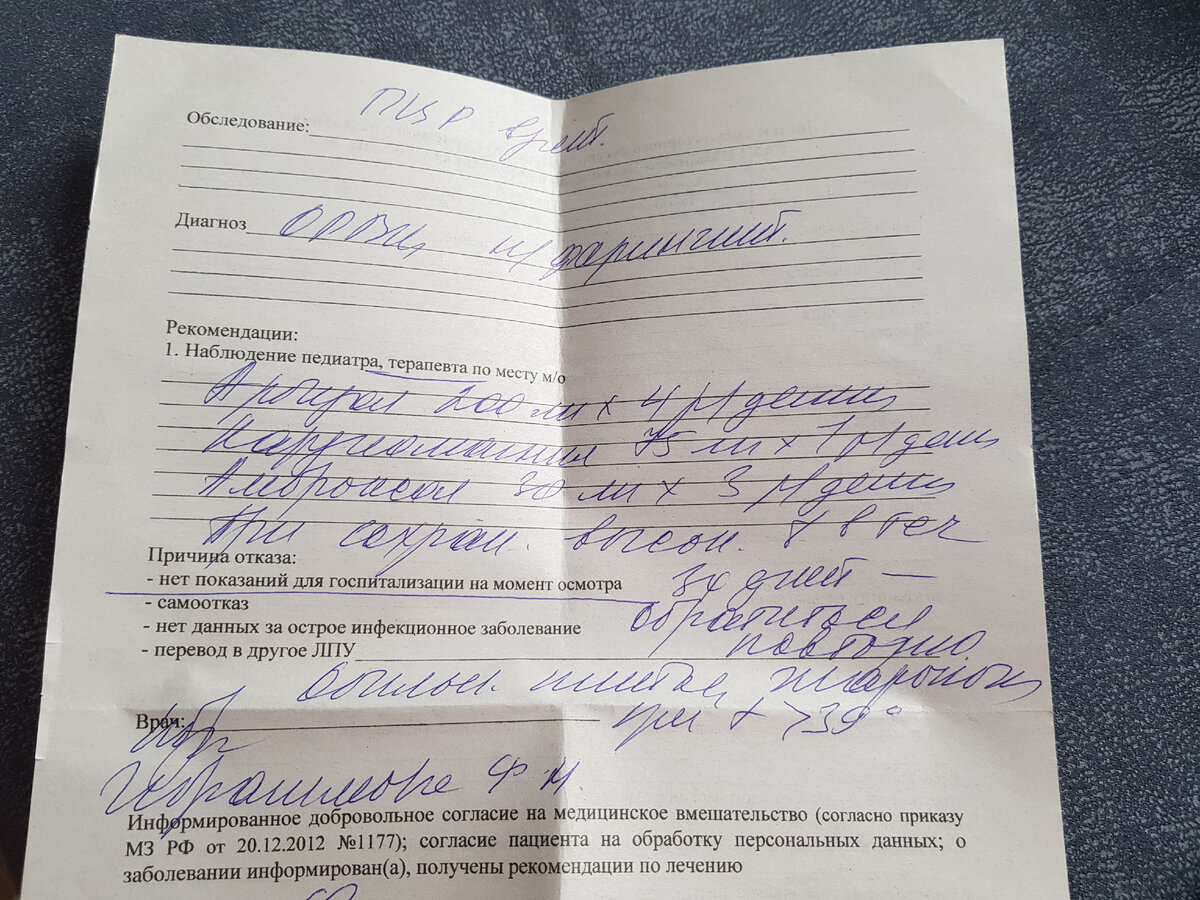 Обследование: ПЦР взят.
Диагноз ОРВИ, фарингит.
Рекомендации:
1. Наблюдение педиатра, терапевта по месту м/о
200 мг х 4 р/день
Кардиомагнил 75 мг х 1 р/день
Амброксол 30 мг х 3 р/день
При сохран. высок. t в теч
Причина отказа:
- нет показаний для госпитализации на момент осмотра
дней —
- самоотказ
обратиться
- нет данных за острое инфекционное заболевание
повторно.
- перевод в другое ЛПУ
Обильн. питье, жаропон
Врач:
при t >39°
Ибрагимова Ф М
Информированное добровольное согласие на медицинское вмешательство (согласно приказу
МЗ РФ от 20.12.2012 №1177); согласие пациента на обработку персональных данных; о
заболевании информирован(а), получены рекомендации по лечению